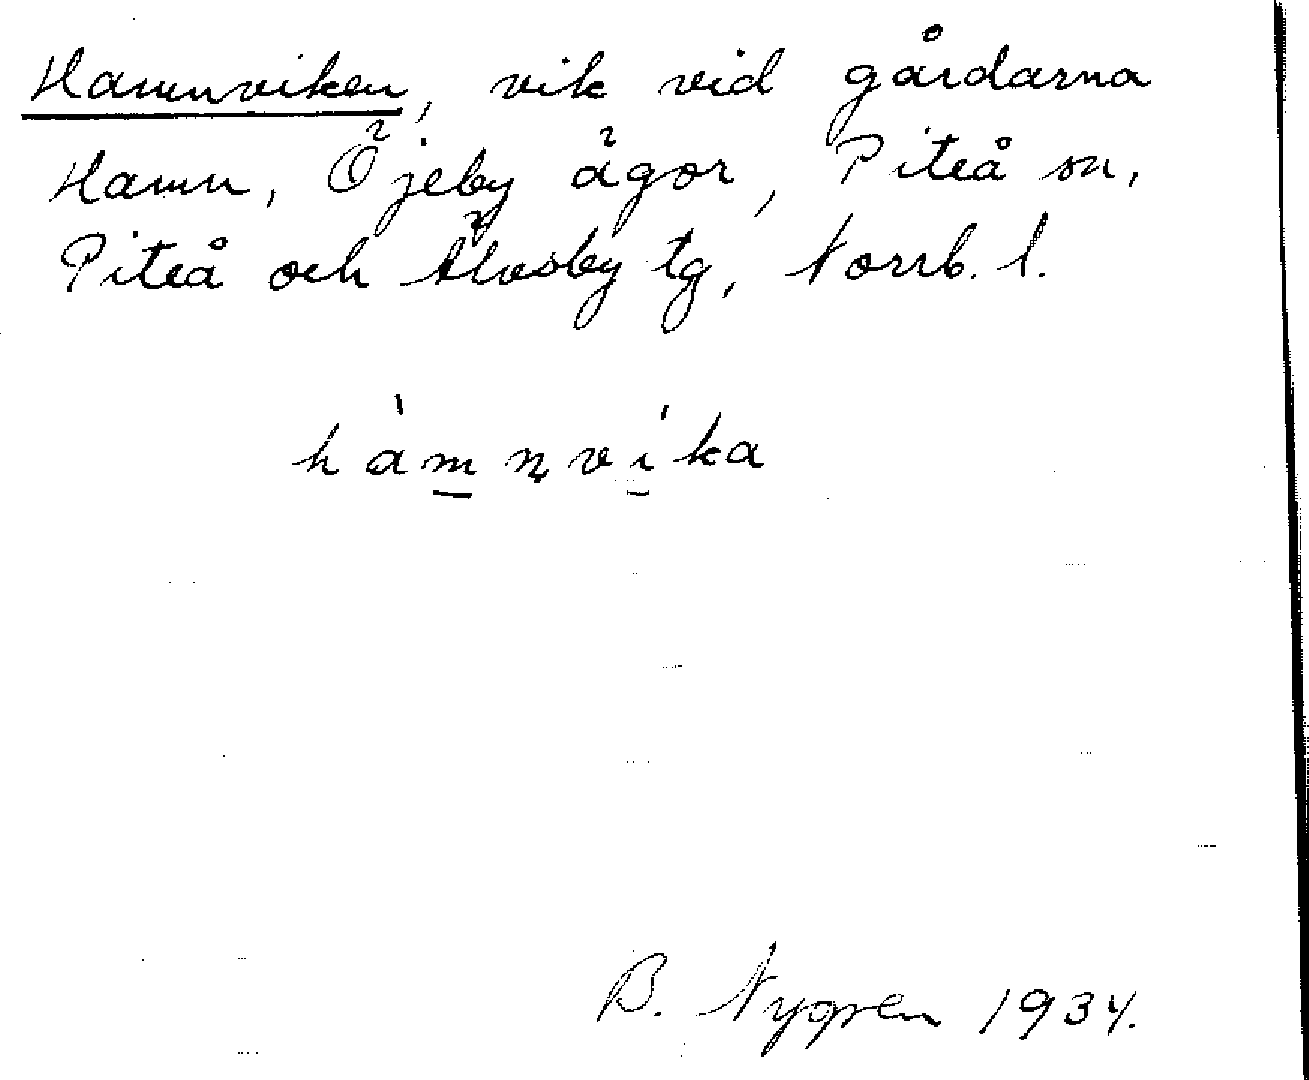 Hamnviken, vik vid gårdarna
Hamn, Öjeby ägor, Piteå sn,
Piteå och Älvsby tg, Norrb. l.
hàm̲n̥ví̲ka
B. Nygren 1934.